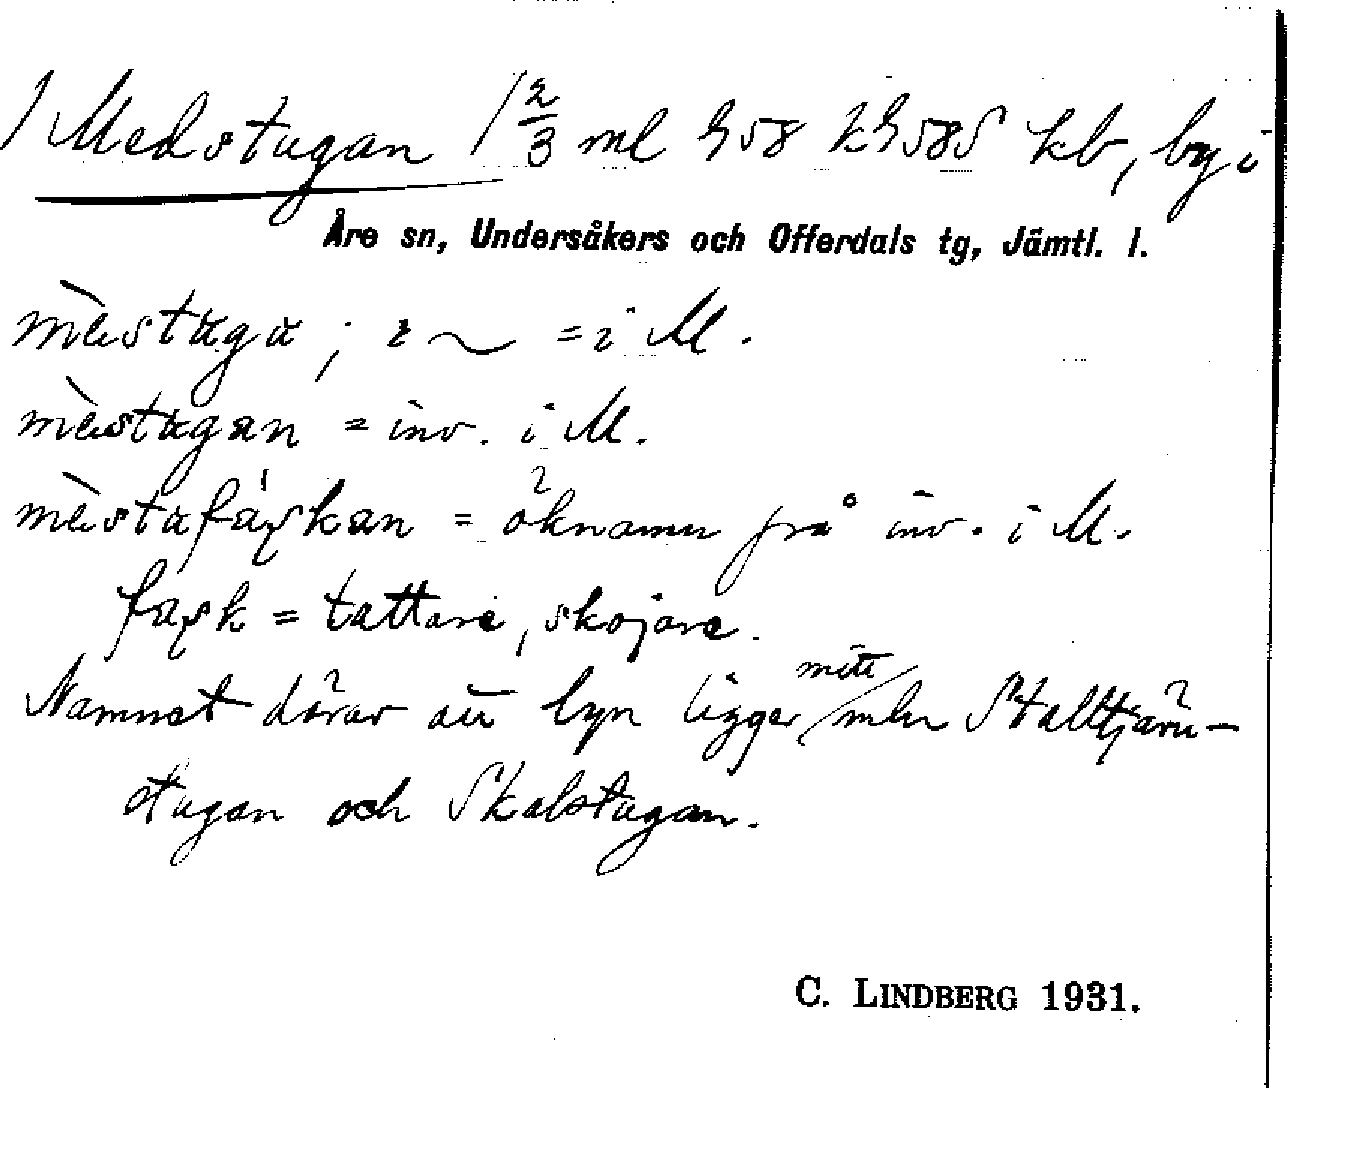 1 Medstugan 1 2/3 ml 958 k9585 kb, by i
Åre sn, Undersåkers och Offerdals tg, Jämtl. l.
mèstaga ; i ~ = i M.
mèstagan = inv. i M.
= öknamn på inv. i M.
= tattare, skojare.
Namnet därav att byn ligger mitt mln Stalltjärn-
stugan och Skalstugan.
C. LINDBERG 1931.